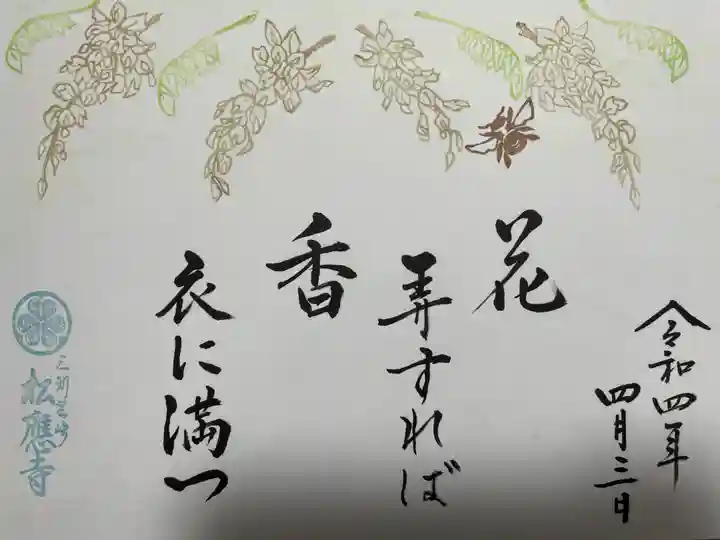 令和四年
四月三日
花
弄すれば
香
衣に満つ
三州岡崎
松應寺